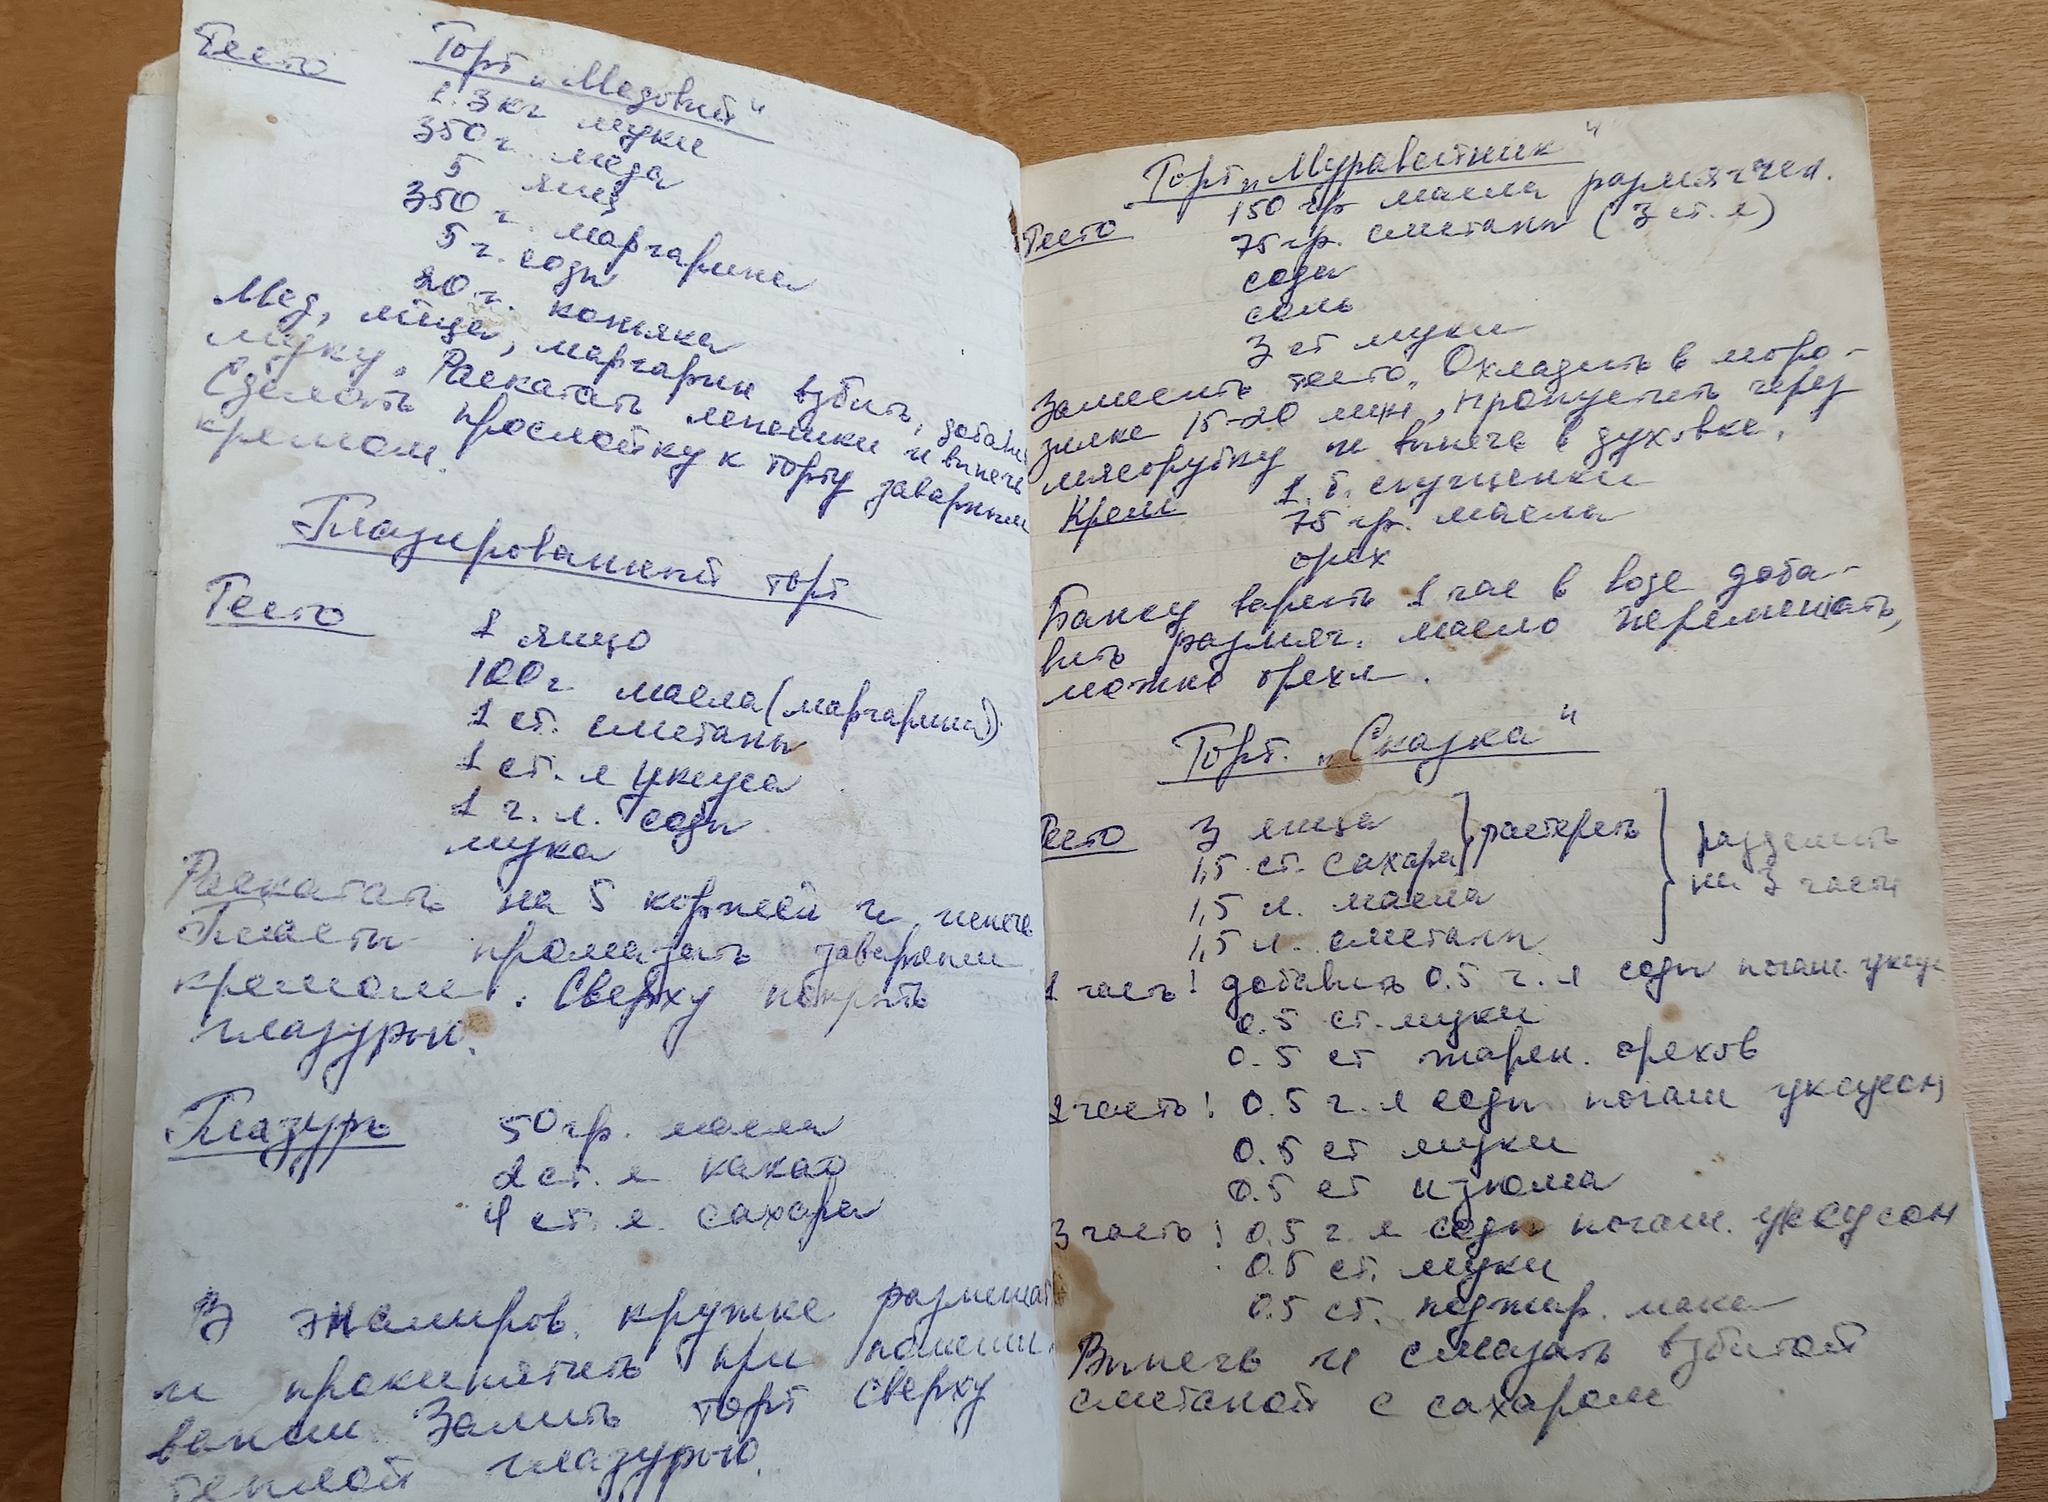 Торт „Медовый"
Тесто
1.3 кг муки
350 г. меда
5 яиц
350 г. маргарина
5 г. соды
20 г. коньяка
Мед, яйца, маргарин взбить, добавить
муку. Раскатать лепешки и выпечь
Сделать прослойку к торту заварным
кремом.
Глазированный торт
Тесто
1 яйцо
100 г масла (маргарина)
1 ст. сметаны
1 ст. л уксуса
1 ч. л. соды
мука
Раскатать на 5 коржей и испечь
Пласты промазать заварным
кремом. Сверху покрыть
глазурью.
Глазурь 50 гр. масла
2 ст. л какао
4 ст. л. сахара
В эмалиров. кружке размешать
и прокипятить при помеши-
вании. Залить торт сверху
теплой глазурью.
Торт „Муравейник"
Тесто 150 гр масла размягчен.
75 гр. сметаны (3 ст. л)
соды
соль
3 ст муки
Замесить тесто. Охладить в моро-
зилке 15-20 мин, пропустить через
мясорубку и выпечь в духовке.
Крем 1 б. сгущенки
75 гр. масла
орех
Банку варить 1 час в воде доба-
вить размяг. масло перемешать,
можно орехи.
Торт. „Сказка"
Тесто 3 яйца } растереть } разделить
1,5 ст. сахара на 3 части
1,5 л. масла
1,5 л. сметаны
1 часть! добавить 0.5 ч. л соды погаш. уксус
0.5 ст. муки
0.5 ст жарен. орехов
2 часть! 0.5 ч. л соды погаш уксусом
0.5 ст муки
0.5 ст изюма
3 часть! 0.5 ч. л соды погаш. уксусом
0.5 ст. муки
0.5 ст. поджар. мака
Выпечь и смазать взбитой
сметаной с сахаром